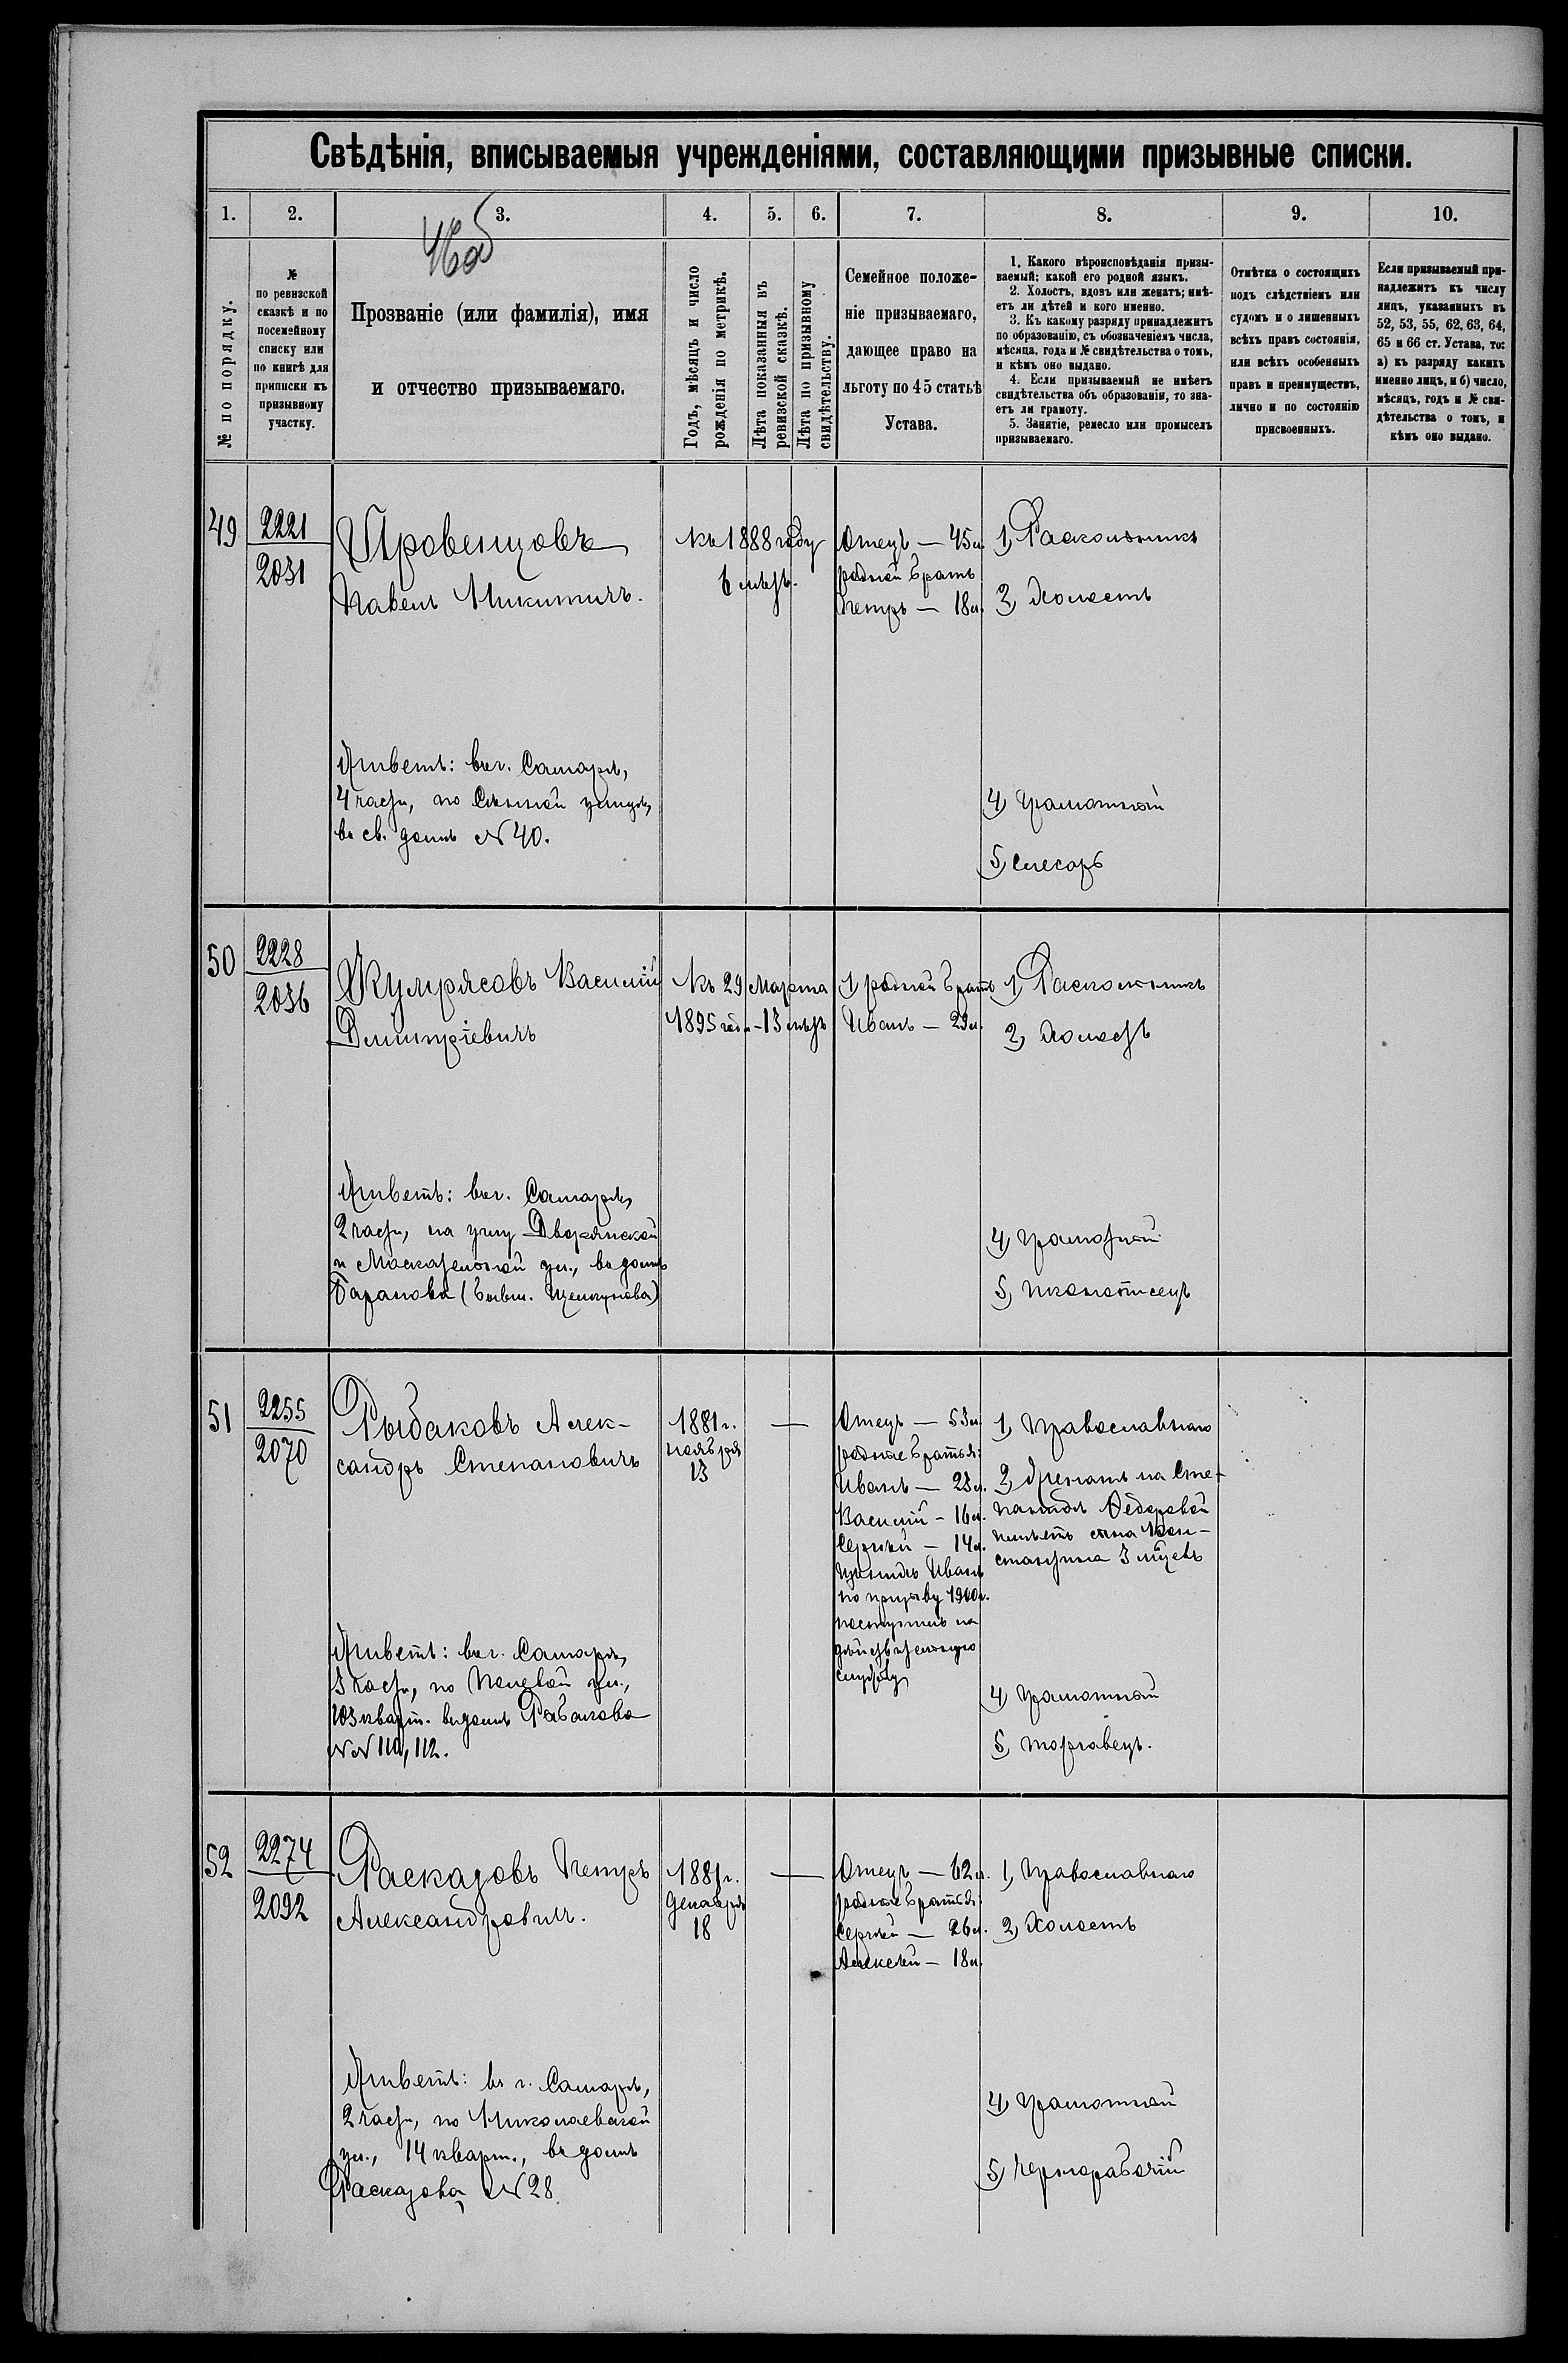 Свѣдѣнія, вписываемыя учрежденіями, составляющими призывные списки.
1.
2.
3.
4.
5.
6.
7.
8.
9.
10.
46об
№ по порядку.
№
по ревизской
сказкѣ и по
посемейному
списку или
по книгѣ для
приписки къ
призывному
участку.
Прозваніе (или фамилія), имя
и отчество призываемаго.
Годъ, мѣсяцъ и число
рожденія по метрикѣ.
Лѣта показанныя въ
ревизской сказкѣ.
Лѣта по призывному
свидѣтельству.
Семейное положе-
ніе призываемаго,
дающее право на
льготу по 45 статьѣ
Устава.
1. Какого вѣроисповѣданія призы-
ваемый; какой его родной языкъ.
2. Холостъ, вдовъ или женатъ; имѣ-
етъ ли дѣтей и кого именно.
3. Къ какому разряду принадлежитъ
по образованію, съ обозначеніемъ числа,
мѣсяца, года и № свидѣтельства о томъ,
и кѣмъ оно выдано.
4. Если призываемый не имѣетъ
свидѣтельства объ образованіи, то зна-
етъ ли грамоту.
5. Занятіе, ремесло или промыселъ
призываемаго.
Отмѣтка о состоящихъ
подъ слѣдствіемъ или
судомъ и о лишенныхъ
всѣхъ правъ состоянія,
или всѣхъ особенныхъ
правъ и преимуществъ,
лично и по состоянію
присвоенныхъ.
Если призываемый при-
надлежитъ къ числу
лицъ, указанныхъ въ
52, 53, 55, 62, 63, 64,
65 и 66 ст. Устава, то:
а) къ разряду какихъ
именно лицъ, и б) число,
мѣсяцъ, годъ и № сви-
дѣтельства о томъ, и
кѣмъ оно выдано.
49
2221
2031
Павелъ Никитичъ.
Къ 1888 году
6 лѣтъ.
Отецъ — 45 л.
родной братъ
Петръ — 18 л.
1) Раскольникъ
2) Холостъ
Живетъ: въ г. Самарѣ,
4 части, по Сѣнной улицѣ,
въ св. домѣ № 40.
4) Грамотный
5) Слесарь
50
2228
2036
Василій
Дмитріевичъ
Къ 29 Марта
1895 года - 13 лѣтъ
1) родной братъ
Иванъ — 29 л.
1) Раскольникъ
2) Холостъ
Живетъ: въ г. Самарѣ,
2 части, на углу Дворянской
и Москательной ул., въ домѣ
Баранова (бывш. Щелкунова)
4) Грамотный
5) Иконописецъ
51
2255
2070
Рыбаковъ Алек-
сандръ Степановичъ
1881 г.
ноября
13
—
Отецъ — 53 л.
родные братья:
Иванъ — 23 л.
Василій - 16 л.
Сергѣй — 14 л.
Изъ нихъ Иванъ
по призыву 1900 г.
поступилъ на
дѣйствительную
службу
1) Православнаго
2) Женатъ на Сте-
панидѣ Ѳедоровой
имѣетъ сына Кон-
стантина 3 мѣсевъ
Живетъ: въ г. Самарѣ,
3 части, по Полевой ул.,
103 кварт. въ домѣ Рыбакова
№№ 110, 112.
4) Грамотный
5) Торговецъ.
52
2274
2092
Расказовъ Петръ
Александровичъ.
1881 г.
декабря
18
—
Отецъ — 62 л.
родные братья:
Сергѣй — 26 л.
Алексѣй — 18 л.
1) Православнаго
2) Холостъ
Живетъ: въ г. Самарѣ,
2 части, по Николаевской
ул., 14 кварт., въ домѣ
Расказова № 28.
4) Грамотный
5) Чернорабочій